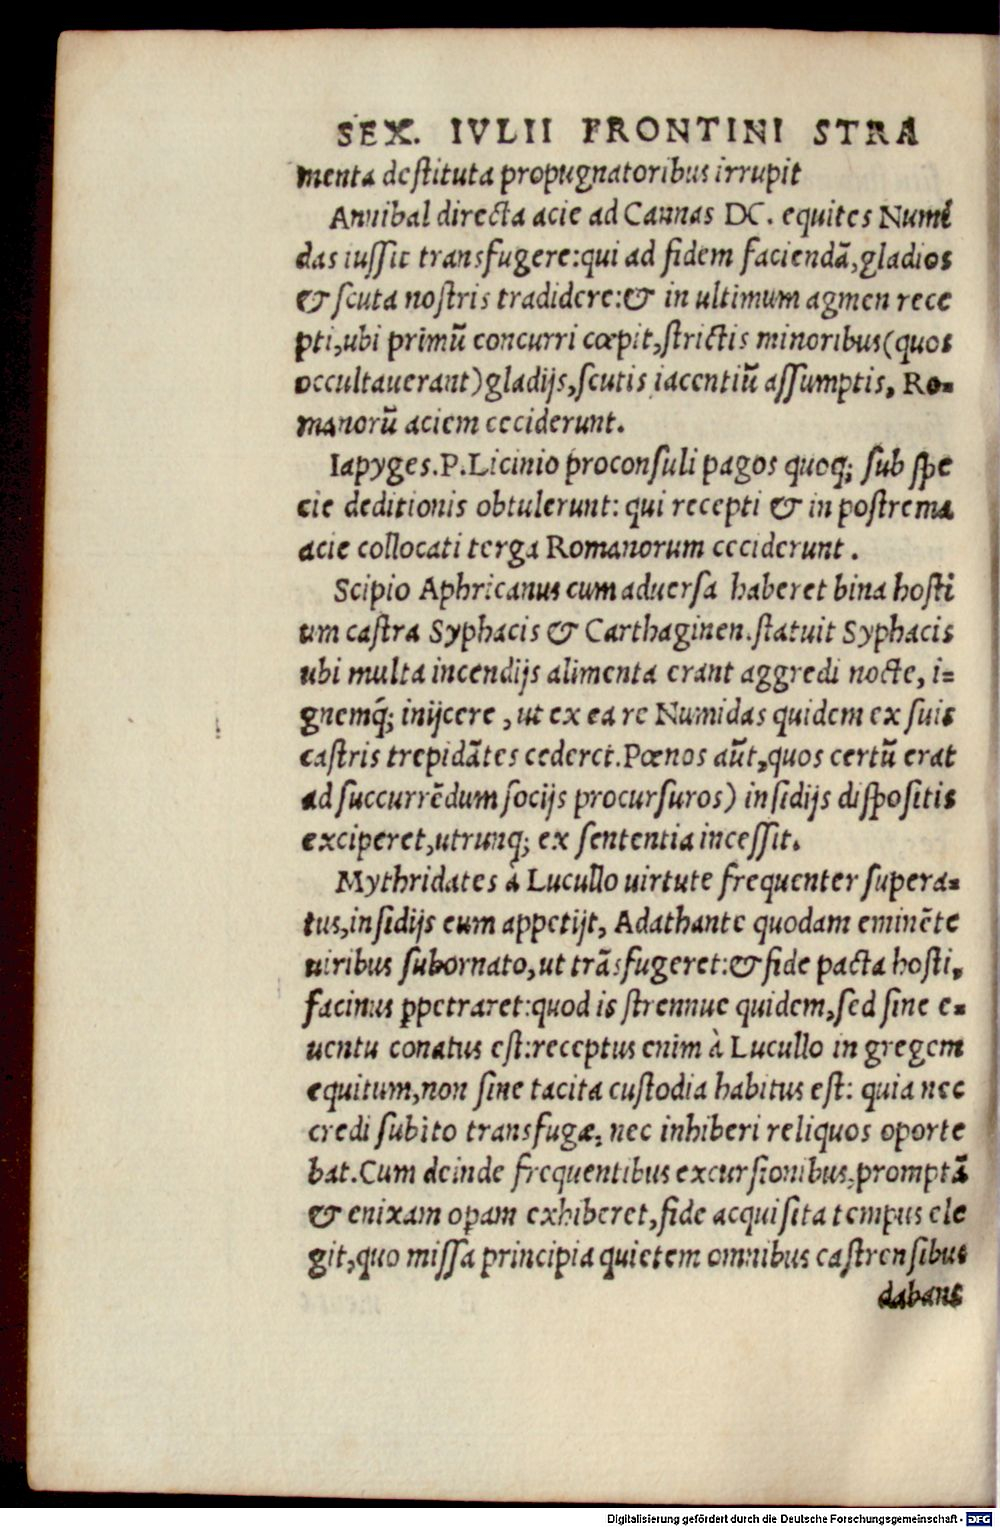 SEX. IVLII FRONTINI STRA
menta deſtituta propugnatoribus irrupit
Annibal directa acie ad Cannas DC. equites Numi
das iuſſit transfugere:qui ad fidem faciendã,gladios
& ſcuta noſtris tradidere:& in ultimum agmen rece
pti,ubi primũ concurri cœpit,ſtrictis minoribus(quos
occultauerant)gladijs,ſcutis iacentiũ aſſumptis, Ro-
manorũ aciem ceciderunt.
Iapyges.P.Licinio proconſuli pagos quoq; ſub ſpe
cie deditionis obtulerunt: qui recepti & in poſtrema
acie collocati terga Romanorum ceciderunt .
Scipio Aphricanus cum aduerſa haberet bina hoſti
um caſtra Syphacis & Carthaginen.ſtatuit Syphacis
ubi multa incendijs alimenta erant aggredi nocte, i=
gnemq́; inijcere , ut ex ea re Numidas quidem ex ſuis
caſtris trepidãtes cederet.Pœnos aũt,quos certũ erat
ad ſuccurrẽdum ſocijs procurſuros) inſidijs diſpoſitis
exciperet,utrunq; ex ſententia inceſſit.
Mythridates à Lucullo uirtute frequenter ſupera-
tus,inſidijs eum appetijt, Adathante quodam eminẽte
uiribus ſubornato,ut trãsfugeret:& fide pacta hoſti,
facinus ꝑpetraret:quod is ſtrennue quidem,ſed ſine e-
uentu conatus eſt:receptus enim à Lucullo in gregem
equitum,non ſine tacita cuſtodia habitus eſt: quia nec
credi ſubito transfugæ, nec inhiberi reliquos oporte
bat.Cum deinde frequentibus excurſionibus,promptã
& enixam oꝑam exhiberet,fide acquiſita tempus ele
git,quo miſſa principia quietem omnibus caſtrenſibus
dabant
Digitalisierung gefördert durch die Deutsche Forschungsgemeinschaft - DFG